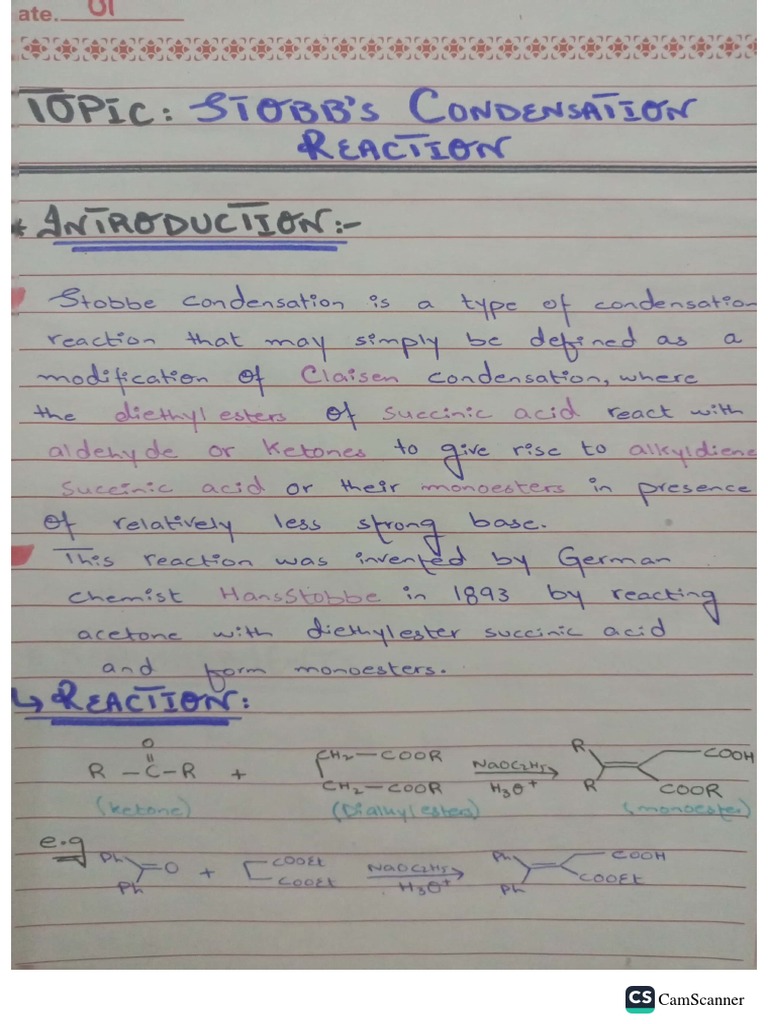 ate. 01
TOPIC: STOBB'S CONDENSATION
REACTION
* INTRODUCTION:-
Stobbe condensation is a type of condensation
reaction that may simply be defined as a
modification of Claisen condensation, where
the diethyl esters of succinic acid react with
aldehyde or Ketones to give rise to alkyldiene
Succinic acid or their monoesters in presence
of relatively less strong base.
This reaction was invented by German
chemist HansStobbe in 1893 by reacting
acetone with diethylester succinic acid
and form monoesters.
↳ REACTION:
O
R – C – R + CH2 – COOR CH2 – COOR NaOC2H5 H3O+ R R COOH COOR
(ketone) (Dialkyl esters) (monoester)
e.g
Ph Ph =O + COOEt COOEt NaOC2H5 H3O+ Ph Ph COOH COOEt
CS CamScanner